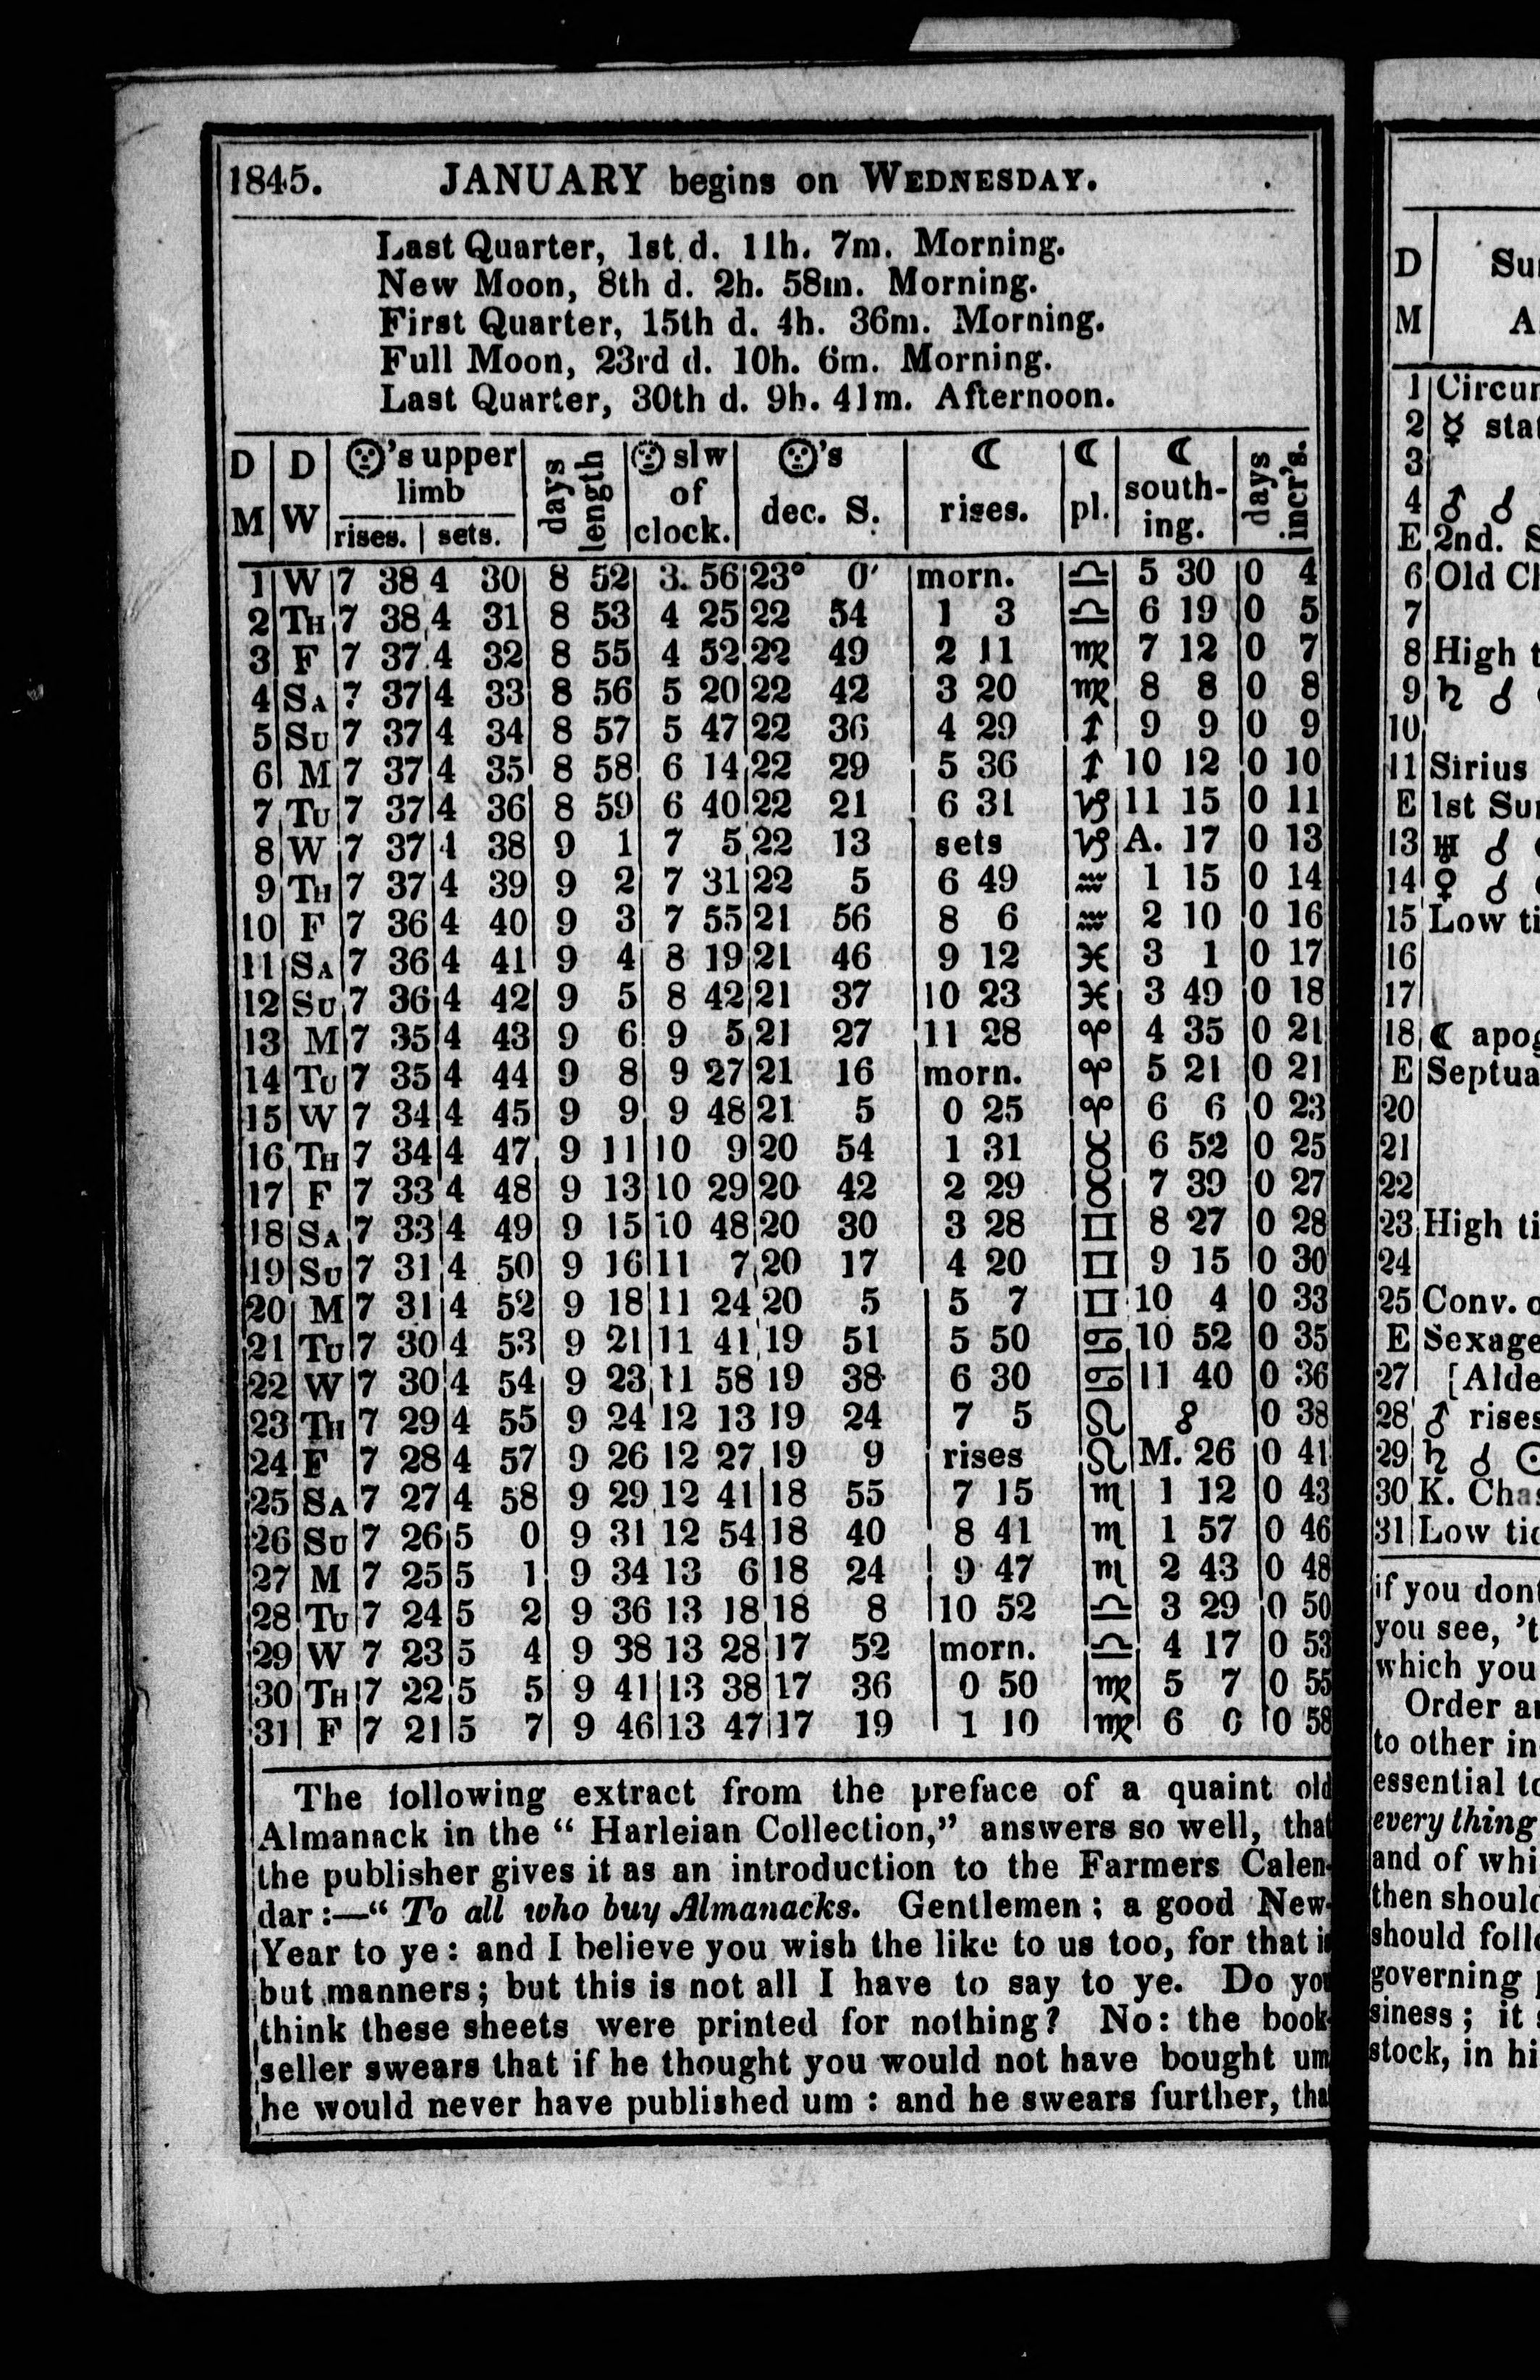 1845. JANUARY begins on WEDNESDAY.
Last Quarter, 1st d. 11h. 7m. Morning.
New Moon, 8th d. 2h. 58m. Morning.
First Quarter, 15th d. 4h. 36m. Morning.
Full Moon, 23rd d. 10h. 6m. Morning.
Last Quarter, 30th d. 9h. 41m. Afternoon.
D M | D W | ☉'s upper limb rises. | sets. | day's length | ☉ slw of clock. | ☉'s dec. S. | ☾ rises. | ☾ pl. | ☾ south-ing. | days incr's.
1 W 7 38 4 30 8 52 3. 56 23° 0' morn. ♎ 5 30 0 4
2 TH 7 38 4 31 8 53 4 25 22 54 1 3 ♎ 6 19 0 5
3 F 7 37 4 32 8 55 4 52 22 49 2 11 ♏ 7 12 0 7
4 SA 7 37 4 33 8 56 5 20 22 42 3 20 ♏ 8 8 0 8
5 SU 7 37 4 34 8 57 5 47 22 36 4 29 ♐ 9 9 0 9
6 M 7 37 4 35 8 58 6 14 22 29 5 36 ♐ 10 12 0 10
7 TU 7 37 4 36 8 59 6 40 22 21 6 31 ♑ 11 15 0 11
8 W 7 37 4 38 9 1 7 5 22 13 sets ♑ A. 17 0 13
9 TH 7 37 4 39 9 2 7 31 22 5 6 49 ♒ 1 15 0 14
10 F 7 36 4 40 9 3 7 55 21 56 8 6 ♒ 2 10 0 16
11 SA 7 36 4 41 9 4 8 19 21 46 9 12 ♓ 3 1 0 17
12 SU 7 36 4 42 9 5 8 42 21 37 10 23 ♓ 3 49 0 18
13 M 7 35 4 43 9 6 9 5 21 27 11 28 ♈ 4 35 0 21
14 TU 7 35 4 44 9 8 9 27 21 16 morn. ♈ 5 21 0 21
15 W 7 34 4 45 9 9 9 48 21 5 0 25 ♈ 6 6 0 23
16 TH 7 34 4 47 9 11 10 9 20 54 1 31 ♉ 6 52 0 25
17 F 7 33 4 48 9 13 10 29 20 42 2 29 ♉ 7 39 0 27
18 SA 7 33 4 49 9 15 10 48 20 30 3 28 ♊ 8 27 0 28
19 SU 7 31 4 50 9 16 11 7 20 17 4 20 ♊ 9 15 0 30
20 M 7 31 4 52 9 18 11 24 20 5 5 7 ♊ 10 4 0 33
21 TU 7 30 4 53 9 21 11 41 19 51 5 50 ♋ 10 52 0 35
22 W 7 30 4 54 9 23 11 58 19 38 6 30 ♋ 11 40 0 36
23 TH 7 29 4 55 9 24 12 13 19 24 7 5 ♌ ☍ 0 38
24 F 7 28 4 57 9 26 12 27 19 9 rises ♌ M. 26 0 41
25 SA 7 27 4 58 9 29 12 41 18 55 7 15 ♍ 1 12 0 43
26 SU 7 26 5 0 9 31 12 54 18 40 8 41 ♍ 1 57 0 46
27 M 7 25 5 1 9 34 13 6 18 24 9 47 ♍ 2 43 0 48
28 TU 7 24 5 2 9 36 13 18 18 8 10 52 ♎ 3 29 0 50
29 W 7 23 5 4 9 38 13 28 17 52 morn. ♎ 4 17 0 53
30 TH 7 22 5 5 9 41 13 38 17 36 0 50 ♏ 5 7 0 55
31 F 7 21 5 7 9 46 13 47 17 19 1 10 ♏ 6 0 0 58
The following extract from the preface of a quaint old
Almanack in the “ Harleian Collection,” answers so well, that
the publisher gives it as an introduction to the Farmers Calen-
dar :—“ To all who buy Almanacks. Gentlemen ; a good New-
Year to ye : and I believe you wish the like to us too, for that i
but manners; but this is not all I have to say to ye. Do you
think these sheets were printed for nothing? No: the book-
seller swears that if he thought you would not have bought um
he would never have published um : and he swears further, tha
D M Su
A
1 Circu
2 ☿ sta
3
4 ♂ ☌
E 2nd. S
6 Old C
7
8 High t
9 ♄ ☌
10
11 Sirius
E 1st Su
13 ♅ ☌
14 ♀ ☌
15 Low ti
16
17
18 ☾ apo
E Septua
20
21
22
23 High ti
24
25 Conv. o
E Sexage
27 [Alde
28 ♂ rises
29 ♄ ☌ ☉
30 K. Chas
31 Low tid
if you dont
you see, 't
which you
Order a
to other in
essential to
every thing
and of whi
then should
should foll
governing
siness ; it
stock, in hi